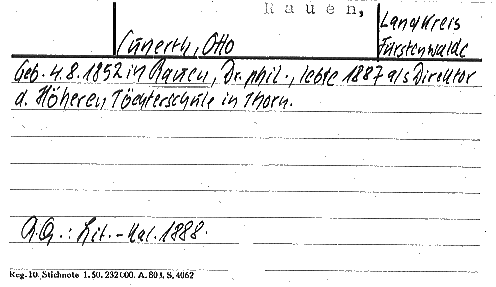 Rauen,
Landkreis
Fürstenwalde
Cunerth, Otto
Geb. 4.8.1852 in Rauen, Dr. phil., lebte 1887 als Direktor
d. Höheren Töchterschule in Thorn.
A.Q.: Lit.-Kal. 1888.
Reg.-10. Stichnote 1. 50. 232 000. A. 803. S. 4062